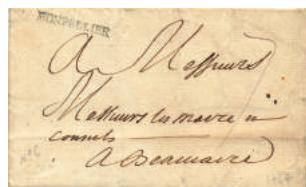 MONPELLIER
A Messieurs
Messieurs les maire et
consuls
A Beaucaire